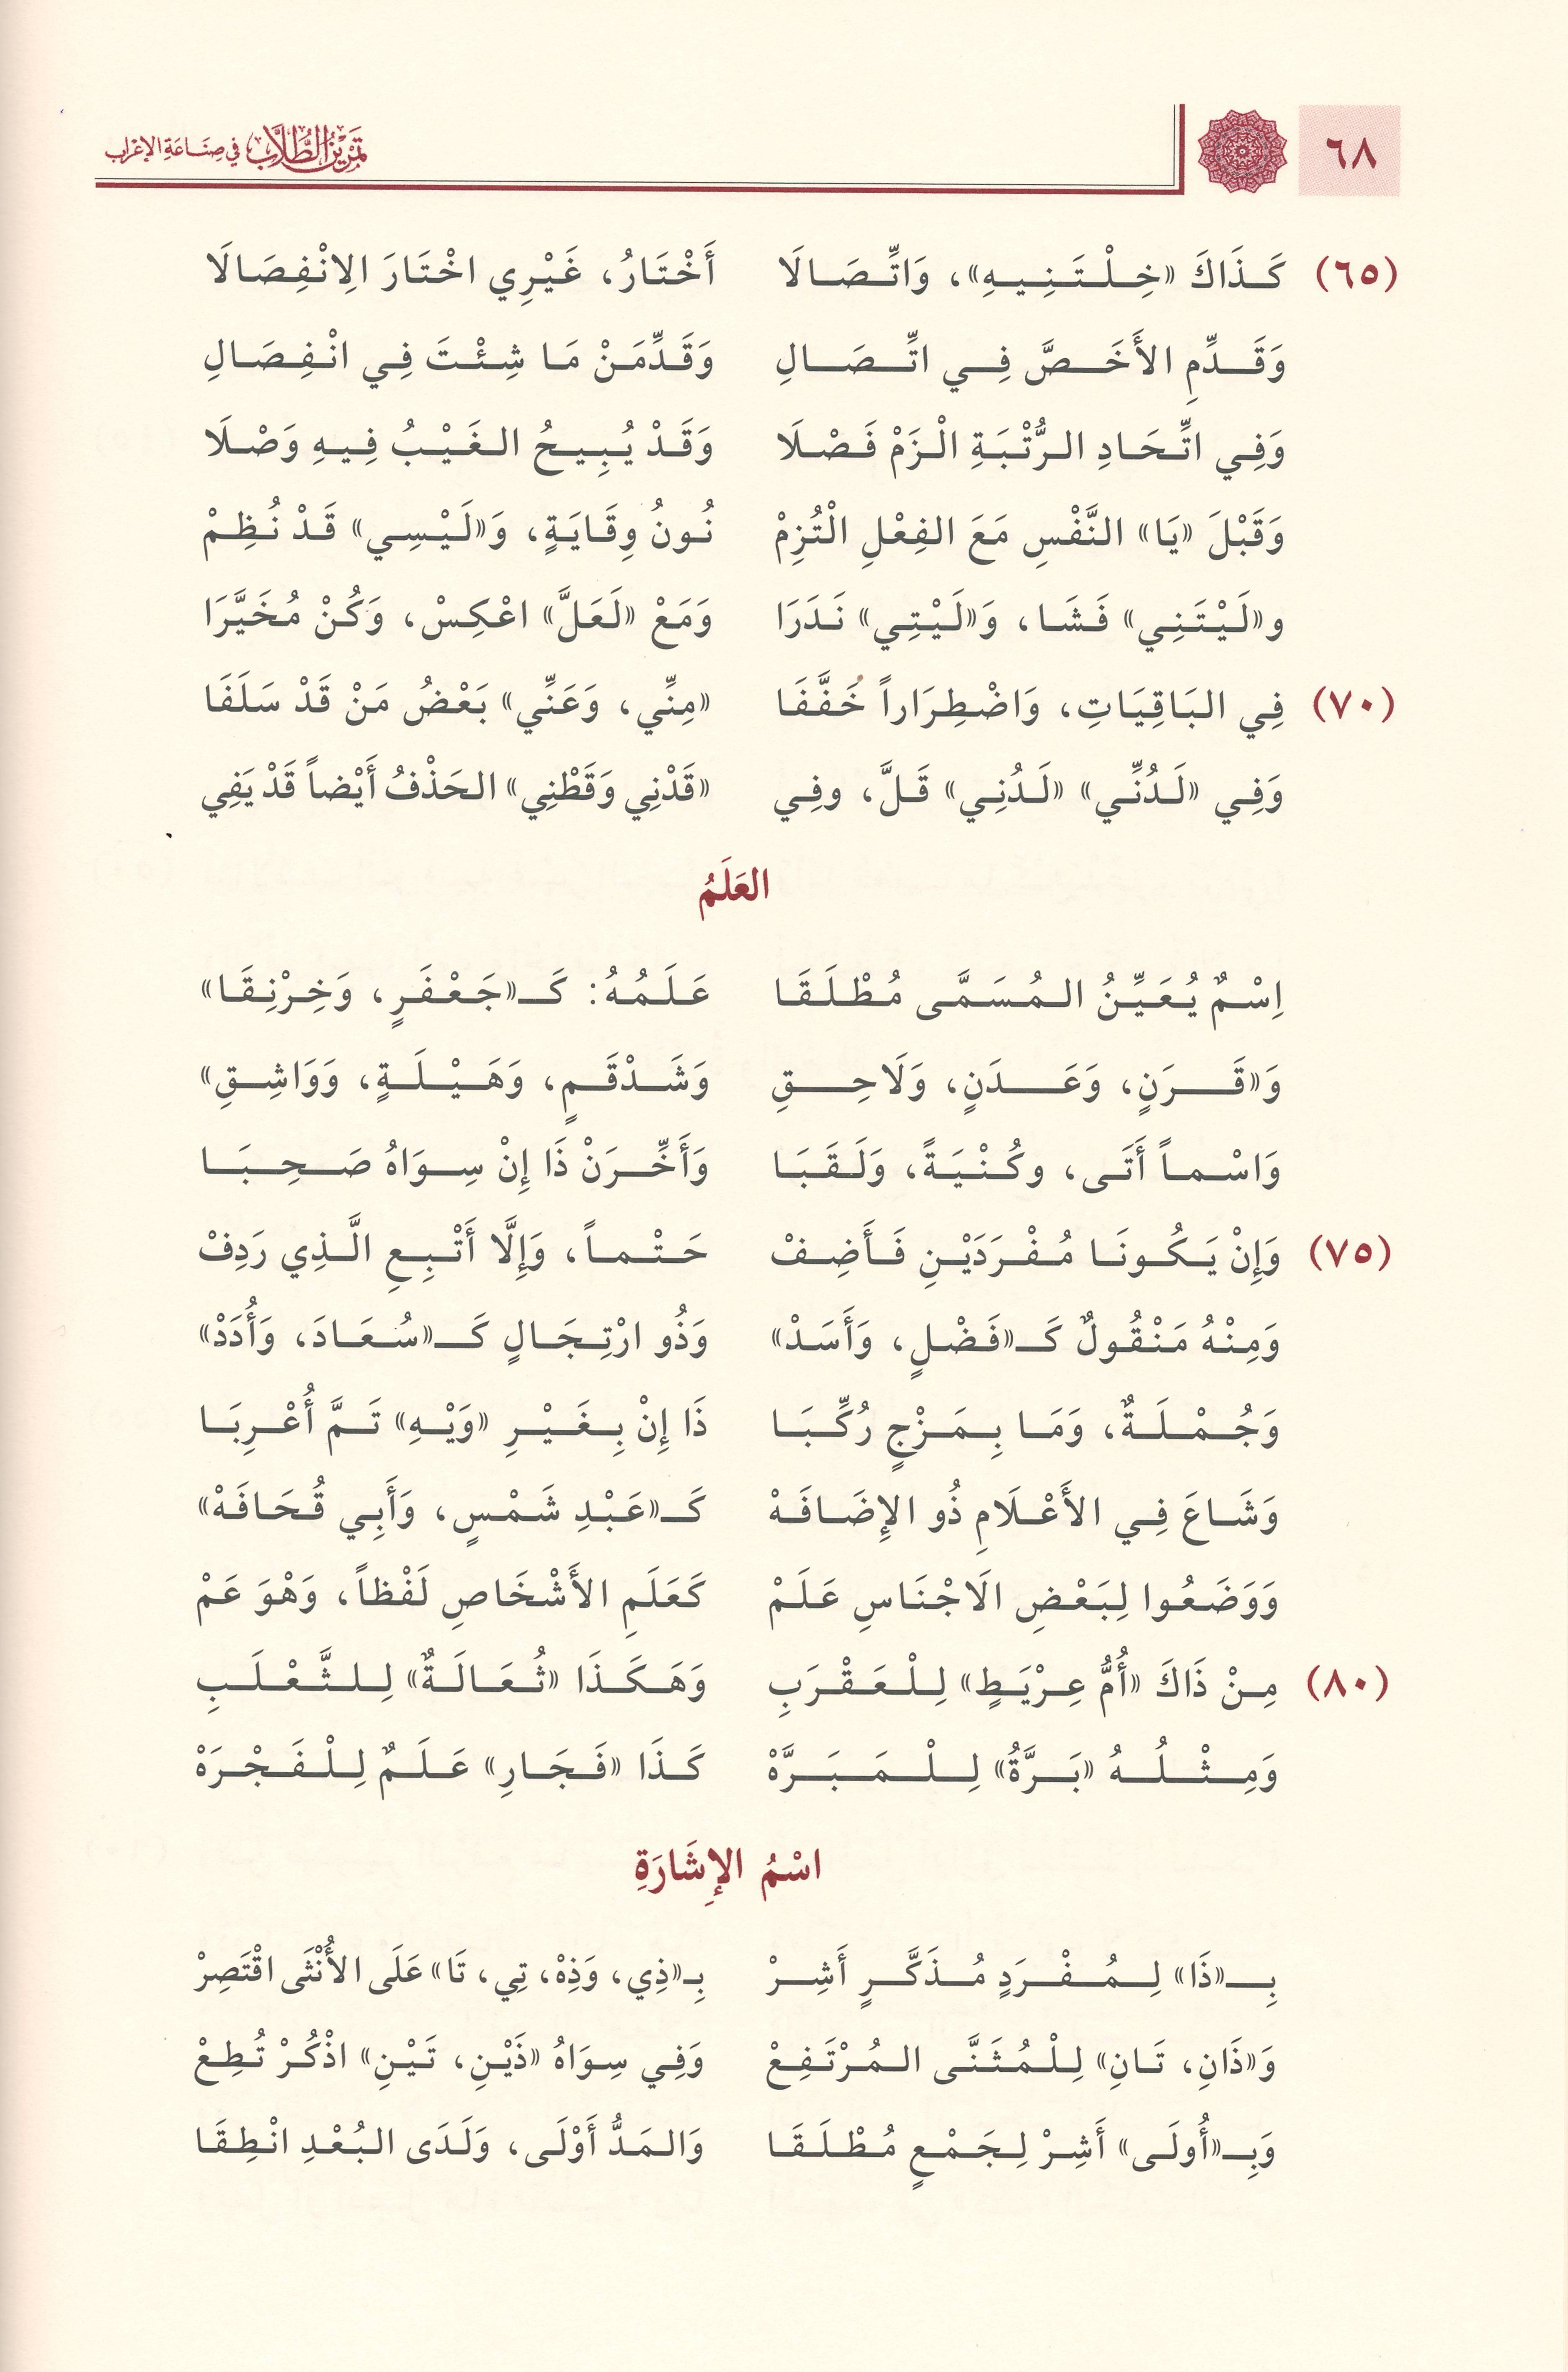 ٦٨ تمرين الطلاب في صناعة الإعراب
(٦٥) كَذَاكَ «خِلْتَنِيهِ»، وَاتِّصَالَا أَخْتَارُ، غَيْرِي اخْتَارَ الِانْفِصَالَا
وَقَدِّمِ الأَخَصَّ فِي اتِّصَالِ وَقَدِّمَنْ مَا شِئْتَ فِي انْفِصَالِ
وَفِي اتِّحَادِ الرُّتْبَةِ الْزَمْ فَصْلَا وَقَدْ يُبِيحُ الغَيْبُ فِيهِ وَصْلَا
وَقَبْلَ «يَا» النَّفْسِ مَعَ الفِعْلِ الْتُزِمْ نُونُ وِقَايَةٍ، وَ«لَيْسِي» قَدْ نُظِمْ
و«لَيْتَنِي» فَشَا، وَ«لَيْتِي» نَدَرَا وَمَعْ «لَعَلَّ» اعْكِسْ، وَكُنْ مُخَيَّرَا
(٧٠) فِي البَاقِيَاتِ، وَاضْطِرَاراً خَفَّفَا «مِنِّي، وَعَنِّي» بَعْضُ مَنْ قَدْ سَلَفَا
وَفِي «لَدُنِّي» «لَدُنِي» قَلَّ، وفِي «قَدْنِي وَقَطْنِي» الحَذْفُ أَيْضاً قَدْ يَفِي
العَلَمُ
اِسْمٌ يُعَيِّنُ المُسَمَّى مُطْلَقَا عَلَمُهُ: كَـ«جَعْفَرٍ، وَخِرْنِقَا»
وَ«قَرَنٍ، وَعَدَنٍ، وَلَاحِقِ وَشَدْقَمٍ، وَهَيْلَةٍ، وَوَاشِقِ»
وَاسْماً أَتَى، وكُنْيَةً، وَلَقَبَا وَأَخِّرَنْ ذَا إِنْ سِوَاهُ صَحِبَا
(٧٥) وَإِنْ يَكُونَا مُفْرَدَيْنِ فَأَضِفْ حَتْماً، وَإِلَّا أَتْبِعِ الَّذِي رَدِفْ
وَمِنْهُ مَنْقُولٌ كَـ«فَضْلٍ، وَأَسَدْ» وَذُو ارْتِجَالٍ كَـ«سُعَادَ، وَأُدَدْ»
وَجُمْلَةٌ، وَمَا بِمَزْجٍ رُكِّبَا ذَا إِنْ بِغَيْرِ «وَيْهِ» تَمَّ أُعْرِبَا
وَشَاعَ فِي الأَعْلَامِ ذُو الإِضَافَهْ كَـ«عَبْدِ شَمْسٍ، وَأَبِي قُحَافَهْ»
وَوَضَعُوا لِبَعْضِ الَاجْنَاسِ عَلَمْ كَعَلَمِ الأَشْخَاصِ لَفْظاً، وَهْوَ عَمْ
(٨٠) مِنْ ذَاكَ «أُمُّ عِرْيَطٍ» لِلْعَقْرَبِ وَهَكَذَا «ثُعَالَةٌ» لِلثَّعْلَبِ
وَمِثْلُهُ «بَرَّةُ» لِلْمَبَرَّهْ كَذَا «فَجَارِ» عَلَمٌ لِلْفَجْرَهْ
اسْمُ الإِشَارَةِ
بِـ«ذَا» لِمُفْرَدٍ مُذَكَّرٍ أَشِرْ بِـ«ذِي، وَذِهْ، تِي، تَا» عَلَى الأُنْثَى اقْتَصِرْ
وَ«ذَانِ، تَانِ» لِلْمُثَنَّى المُرْتَفِعْ وَفِي سِوَاهُ «ذَيْنِ، تَيْنِ» اذْكُرْ تُطِعْ
وَبِـ«أُولَى» أَشِرْ لِجَمْعٍ مُطْلَقَا وَالمَدُّ أَوْلَى، وَلَدَى البُعْدِ انْطِقَا